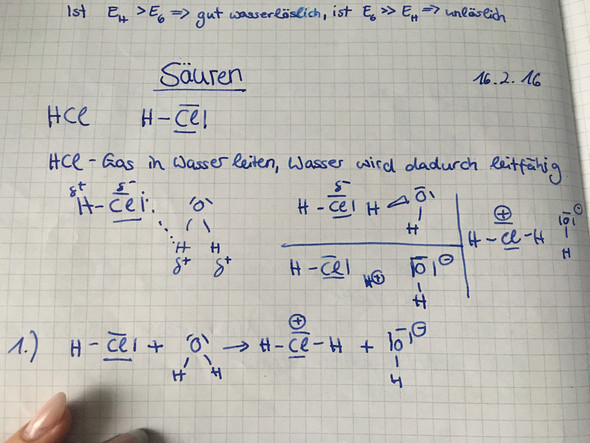 Ist E_H > E_G => gut wasserlöslich, ist E_G >> E_H => unlöslich
Säuren 16.2.16
HCl H-Cl|
HCl-Gas in Wasser leiten, Wasser wird dadurch leitfähig
δ+ δ- δ-
H-Cl| O H-Cl| H O H-Cl-H ⊕ |O| ⊖
H H H H
δ+ δ+ H-Cl| H⊕ |O| ⊖
H
1.) H-Cl| + O → H-Cl-H ⊕ + |O| ⊖
H H H